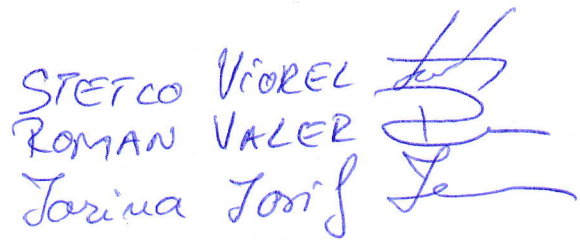 STETCO VIOREL
ROMAN VALER
Iosif